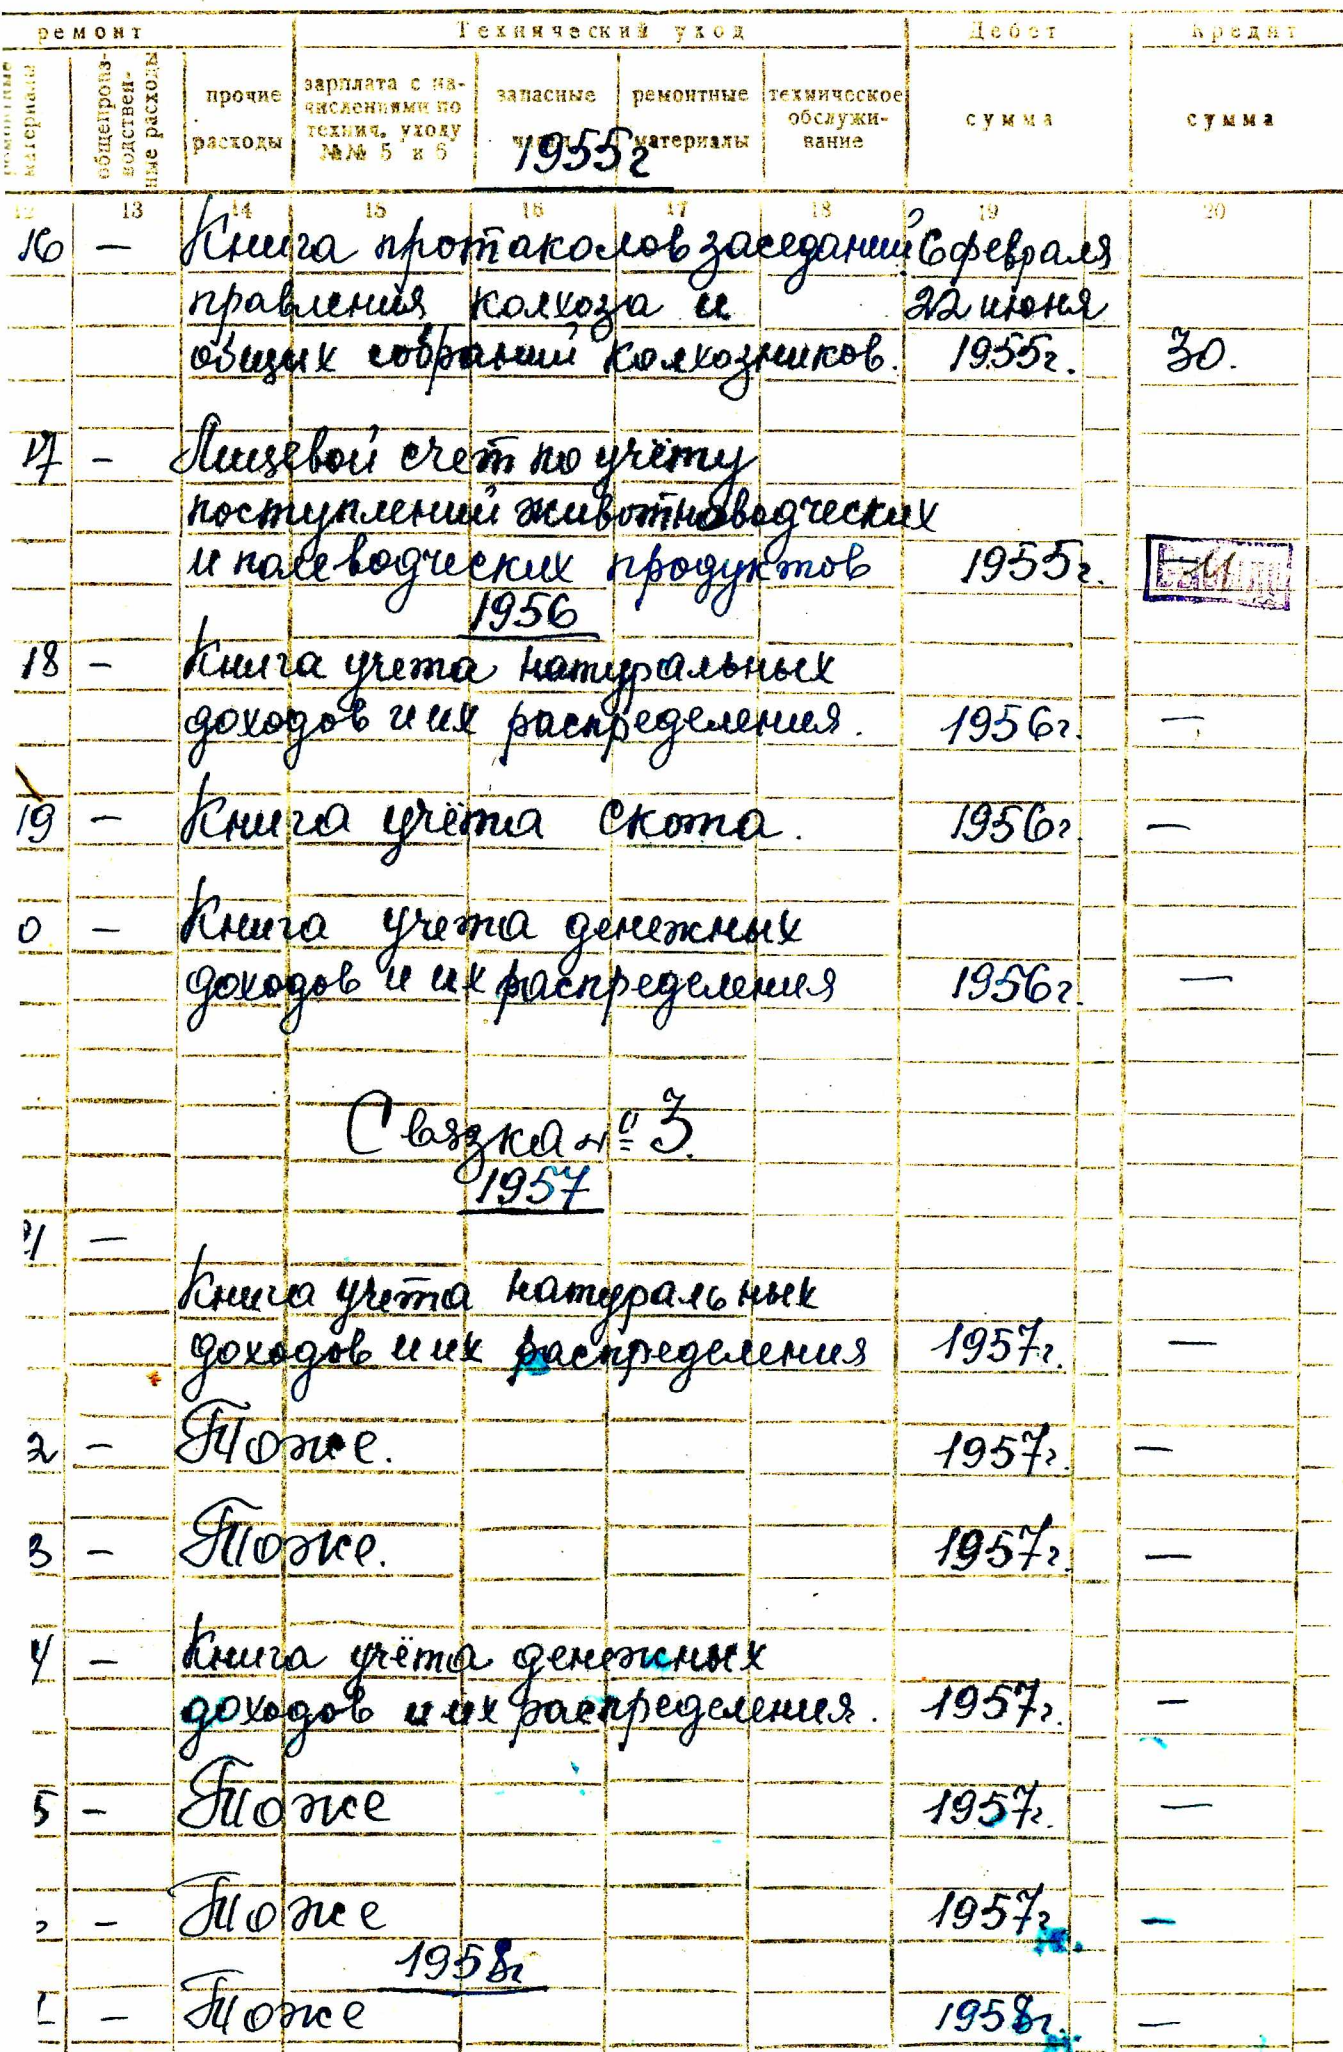 ремонт Технический уход Дебет Кредит
ремонтные материалы общепроизводственные расходы прочие расходы зарплата с на-
числениями по
технич. уходу
№№ 5 и 6
запасные части ремонтные материалы техническое
обслужи-
вание
сумма сумма
1955г
12 13 14 15 16 17 18 19 20
16 — Книга протаколов заседаний 6 февраля
правления колхоза и 22 июня
общих собраний колхозников. 1955г. 30.
17 — Лицевой счет по учёту
поступлений животноводческих
и полеводческих продуктов 1955г.
1956
18 — Книга учета натуральных
доходов и их распределения. 1956г. —
19 — Книга учёта скота. 1956г —
0 — Книга учета денежных
доходов и их распределения 1956г. —
Связка № 3.
1957
21 —
Книга учета натуральных
доходов и их распределения 1957г. —
2 — Тоже. 1957г. —
3 — Тоже. 1957г. —
4 — Книга учёта денежных
доходов и их распределения. 1957г. —
5 — Тоже 1957г. —
— Тоже 1957г —
1958г
— Тоже 1958г. —